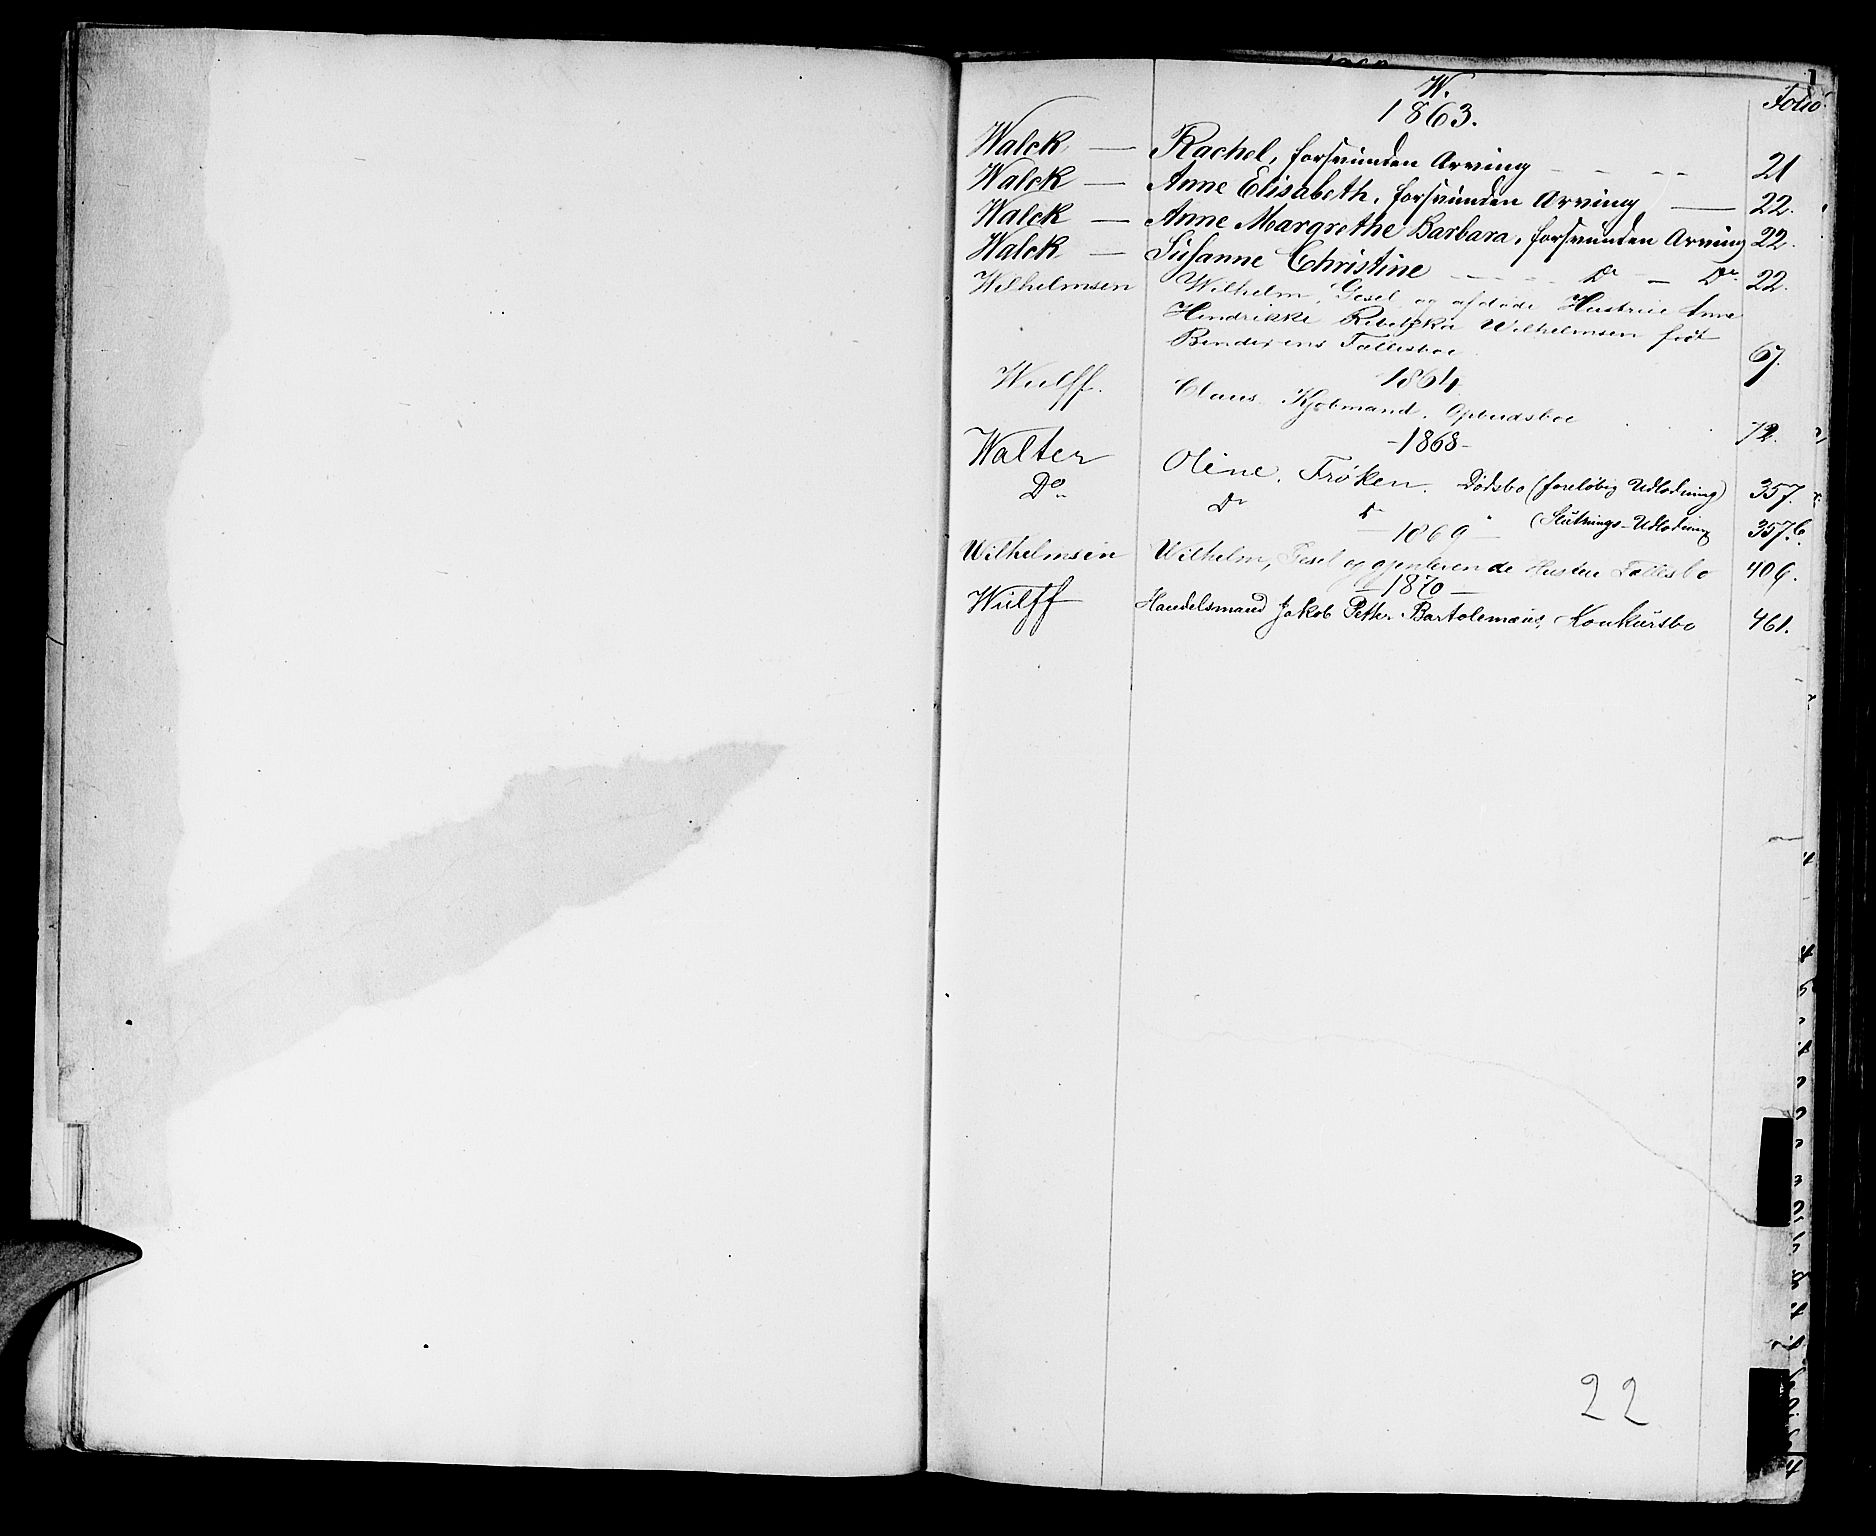 W.
Folio.
1863.
Walck — Rachel, forsvunden Arving - - - - 21
Walck — Anne Elisabeth, forsvunden Arving — 22.
Walck — Anne Margrethe Barbara, forsvunden Arving 22.
Walck — Susanne Christine - - - - Do — Do 22.
Wilhelmsen Wilhelm, Gesel og afdøde Hustrue Anne
Hendrikke Rebekka Wilhelmsen født
Bendixens Fællesboe 67.
1864
Wulff. Claus Kjøbmand. Opbudsboe . . . 72.
-1868-
Walter Oline, Frøken. Dødsbo (foreløbig Udlodning) 357.
Do Do Do (Slutnings-Udlodning 357.b.
—1869—
Wilhelmsen Wilhelm, Gesel og gjenlevende Hustru Fællesbo 406.
—1870—
Wulff Handelsmand Jakob Petter Bartolemæus, Konkursbo 461.
22